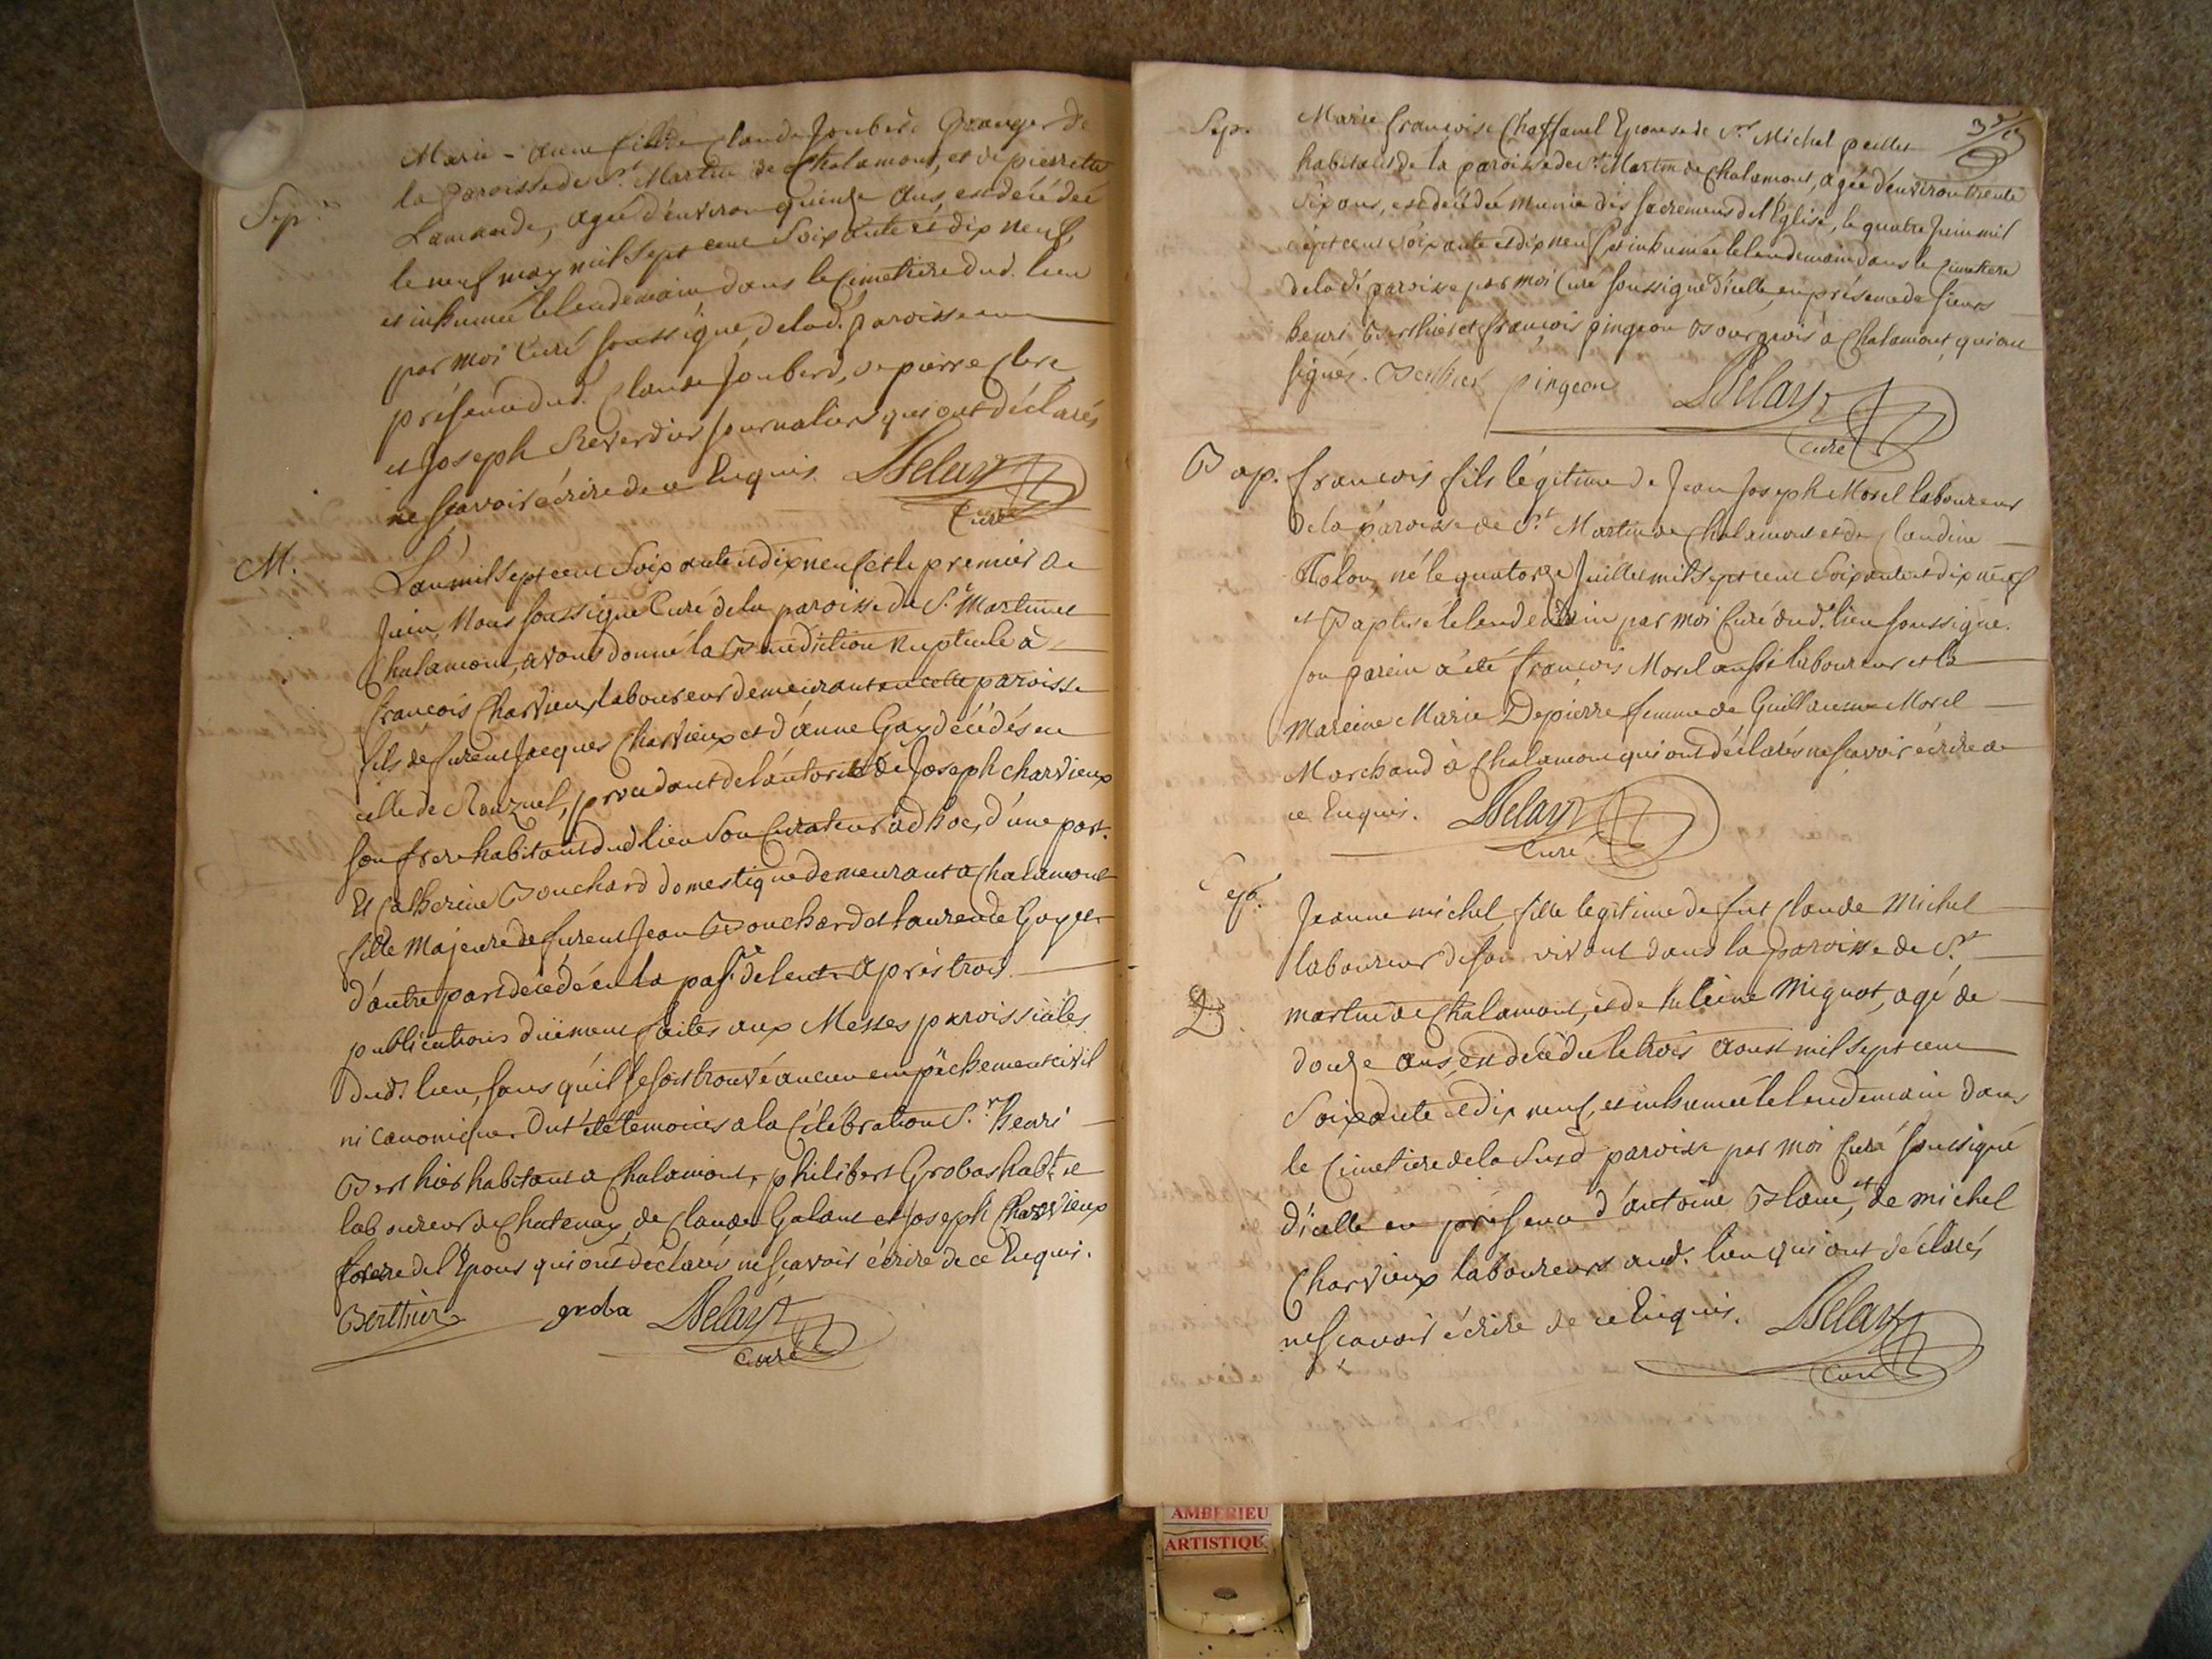 Sep.
Marie-anne fille de Claude Joubert Granger de
la paroisse de St. Martin de Chalamont, et de pierrette
Lamande, agée d'environ quinze ans, est décédée
le neuf may mil sept cent Soixante et dix neuf,
et inhumée le lendemain dans le Cimetiere dud. lieu
par moi Curé soussigné, de lad. paroisse en
présence dud. Claude Joubert, de pierre Clerc
et Joseph Reverdier journaliers qui ont déclarés
ne scavoir écrire de ce Enquis. Delay
Curé
M.
L'an mil sept cent Soixante et dix neuf et le premier de
Juin, Nous soussigné Curé de la paroisse de St. Martin de
Chalamont, avons donné la Bénédiction Nuptiale à
françois Charvieux laboureur demeurant en cette paroisse
fils de furent Jacques Charvieux et d'anne Gay décédés en
celle de Ronzuel, procedant de l'autorité de Joseph charvieux
son frere habitant dud lieu Son Curateur ad hoc, d'une part.
Et Catherine Bouchard domestique demeurant a Chalamont
fille Majeure de furent Jean Bouchard et laurence Goyet
d'autre part décédé en la pasre. de lent. Après trois
publications duëment faites aux Messes paroissiales
dud. lieu, sans qu'il se soit trouvé aucun empêchement civil
ni canonique. Ont été temoins a la Célébration Sr. henri
Berthier habitant a Chalamont, philibert Grobas habt. et
laboureur de Chatenay, de Claude Galant et Joseph Charvieux
frere de l'Epoux qui ont déclarés ne scavoir écrire de ce Enquis.
Berthier groba Delay
Curé
Sep.
Marie françoise Chaffanel Epouse de Sr. Michel peillet
habitant de la paroisse de St. Martin de Chalamont, agée d'environ trente
Six ans, est décédée munie des sacremens de l'Eglise, le quatre Juin mil
sept cent soixante et dix neuf et inhumée le lendemain dans le Cimetiere
de la de. paroisse par moi Curé soussigné d'icelle, en présence de sieurs
henri Berthier et françois pingeon Bourgeois à Chalamont, qui ont
signés. Berthier pingeon Delay
Curé
Bap.
françois fils légitime de Jean Joseph Morel laboureur
de la paroisse de St. Martin de Chalamont et de Claudine
né le quatorze Juillet mil sept cent Soixante et dix neuf
et Baptisé le lendemain par moi Curé dud. lieu soussigné.
son parein a été françois Morel aussi laboureur et la
Mareine Marie Depierre femme de Guillaume Morel
Marchand à Chalamont qui ont déclarés ne scavoir écrire de
ce Enquis. Delay
Curé
Sep.
Jeanne michel, fille legitime de fut Claude Michel
laboureur de son vivant dans la paroisse de St.
martin de Chalamont, et de Mignot, agé de
douze ans, est décédée le trois aoust mil sept cent
Soixante et dix neuf, et inhumée le lendemain dans
le Cimetiere de la Susd paroisse par moi Curé soussigné
d'icelle en présence d'antoine Blanc, et de michel
Charvieux laboureurs aud. lieu qui ont déclarés
ne scavoir écrire de ce Enquis. Delay
Curé
AMBERIEU
ARTISTIQU